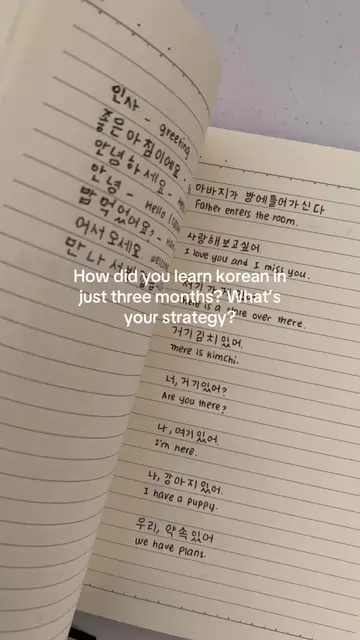 인사 - greeting
좋은 아침이에요 -
안녕하세요 -
안녕 - Hello
밥 먹었어요? -
어서 오세요.
만나서
아바지가 방에들어가신다
Father enters the room.
사랑해 보고싶어.
I love you and I miss you.
is a store over there.
How did you learn korean in
just three months? What's
your strategy?
거기 김치 있어.
There is kimchi.
너, 거기있어?
Are you there?
나, 여기있어.
I'm here.
나, 강아지있어.
I have a puppy.
우리, 약속있어
we have plans.